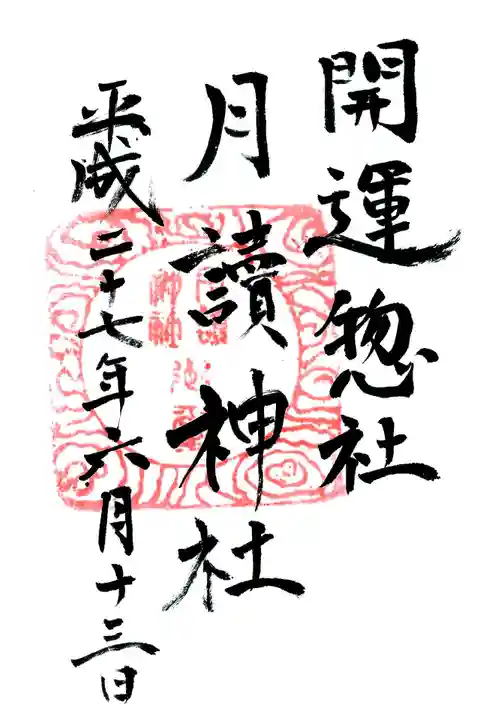 開運惣社
月讀神社
平成二十七年六月十三日